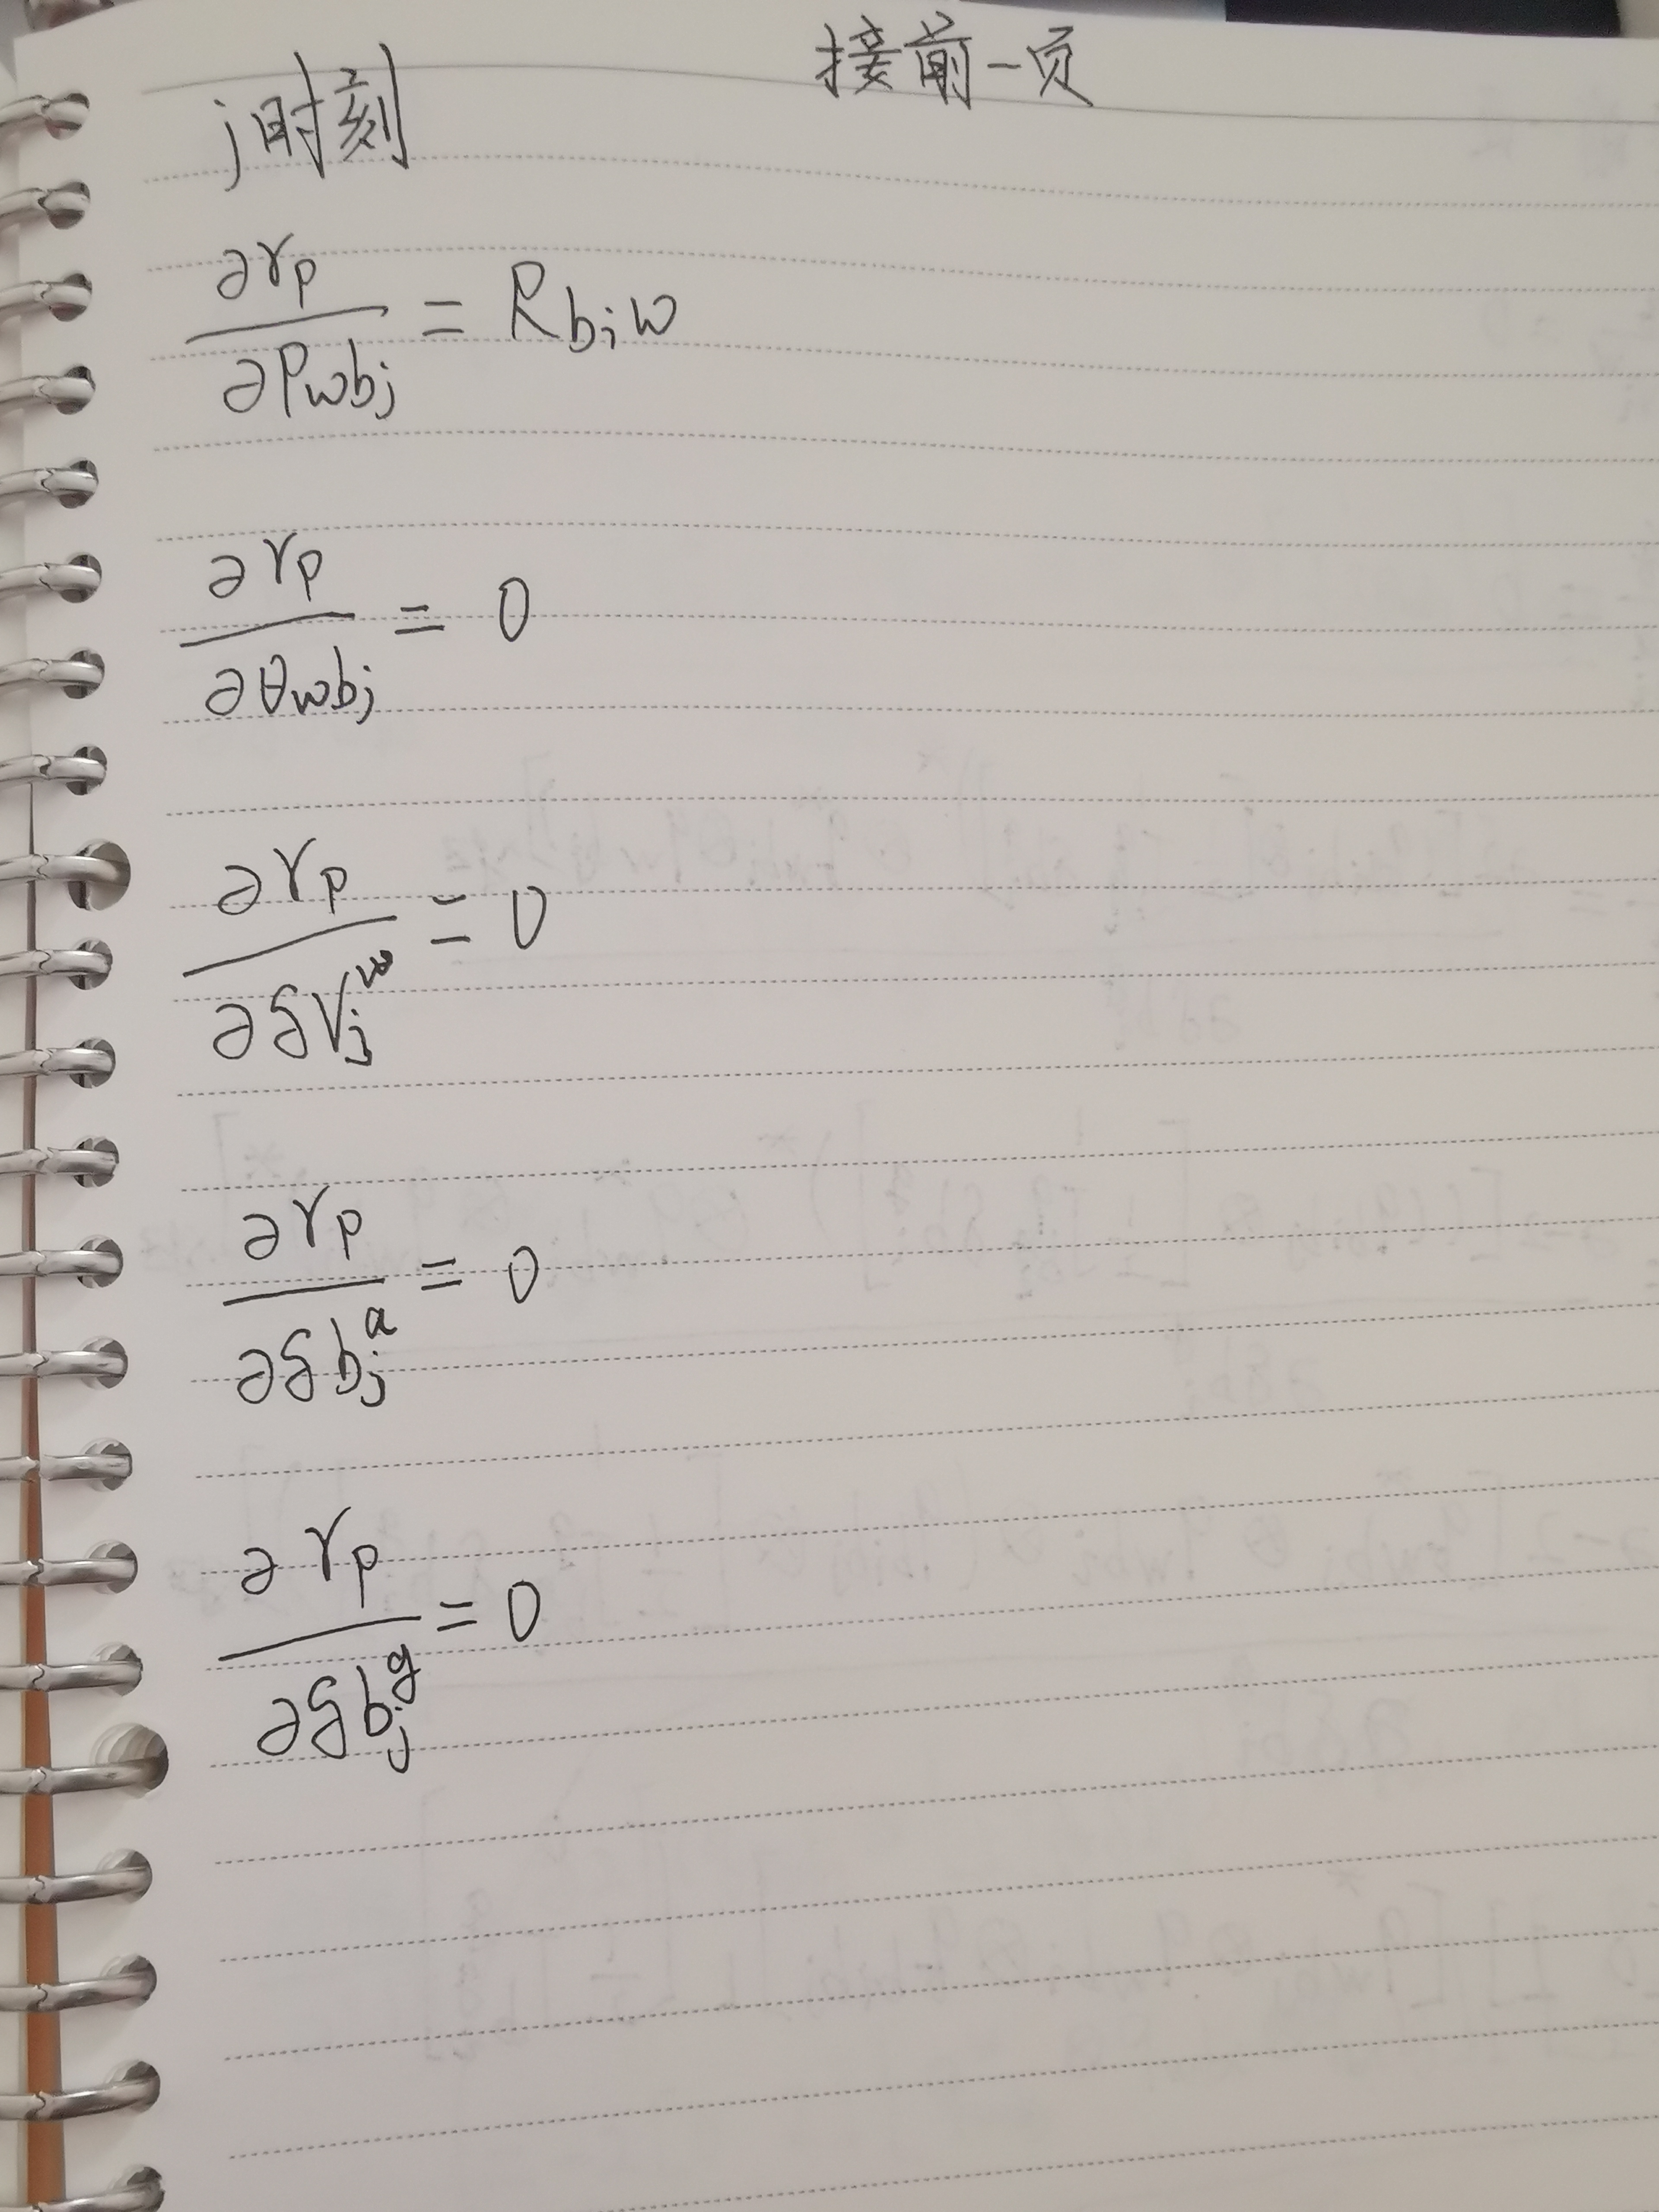 接前一页
j时刻
∂r_p / ∂P_{wb_j} = R_{b_i w}
∂r_p / ∂θ_{wb_j} = 0
∂r_p / ∂δV_j^w = 0
∂r_p / ∂δb_j^a = 0
∂r_p / ∂δb_j^g = 0